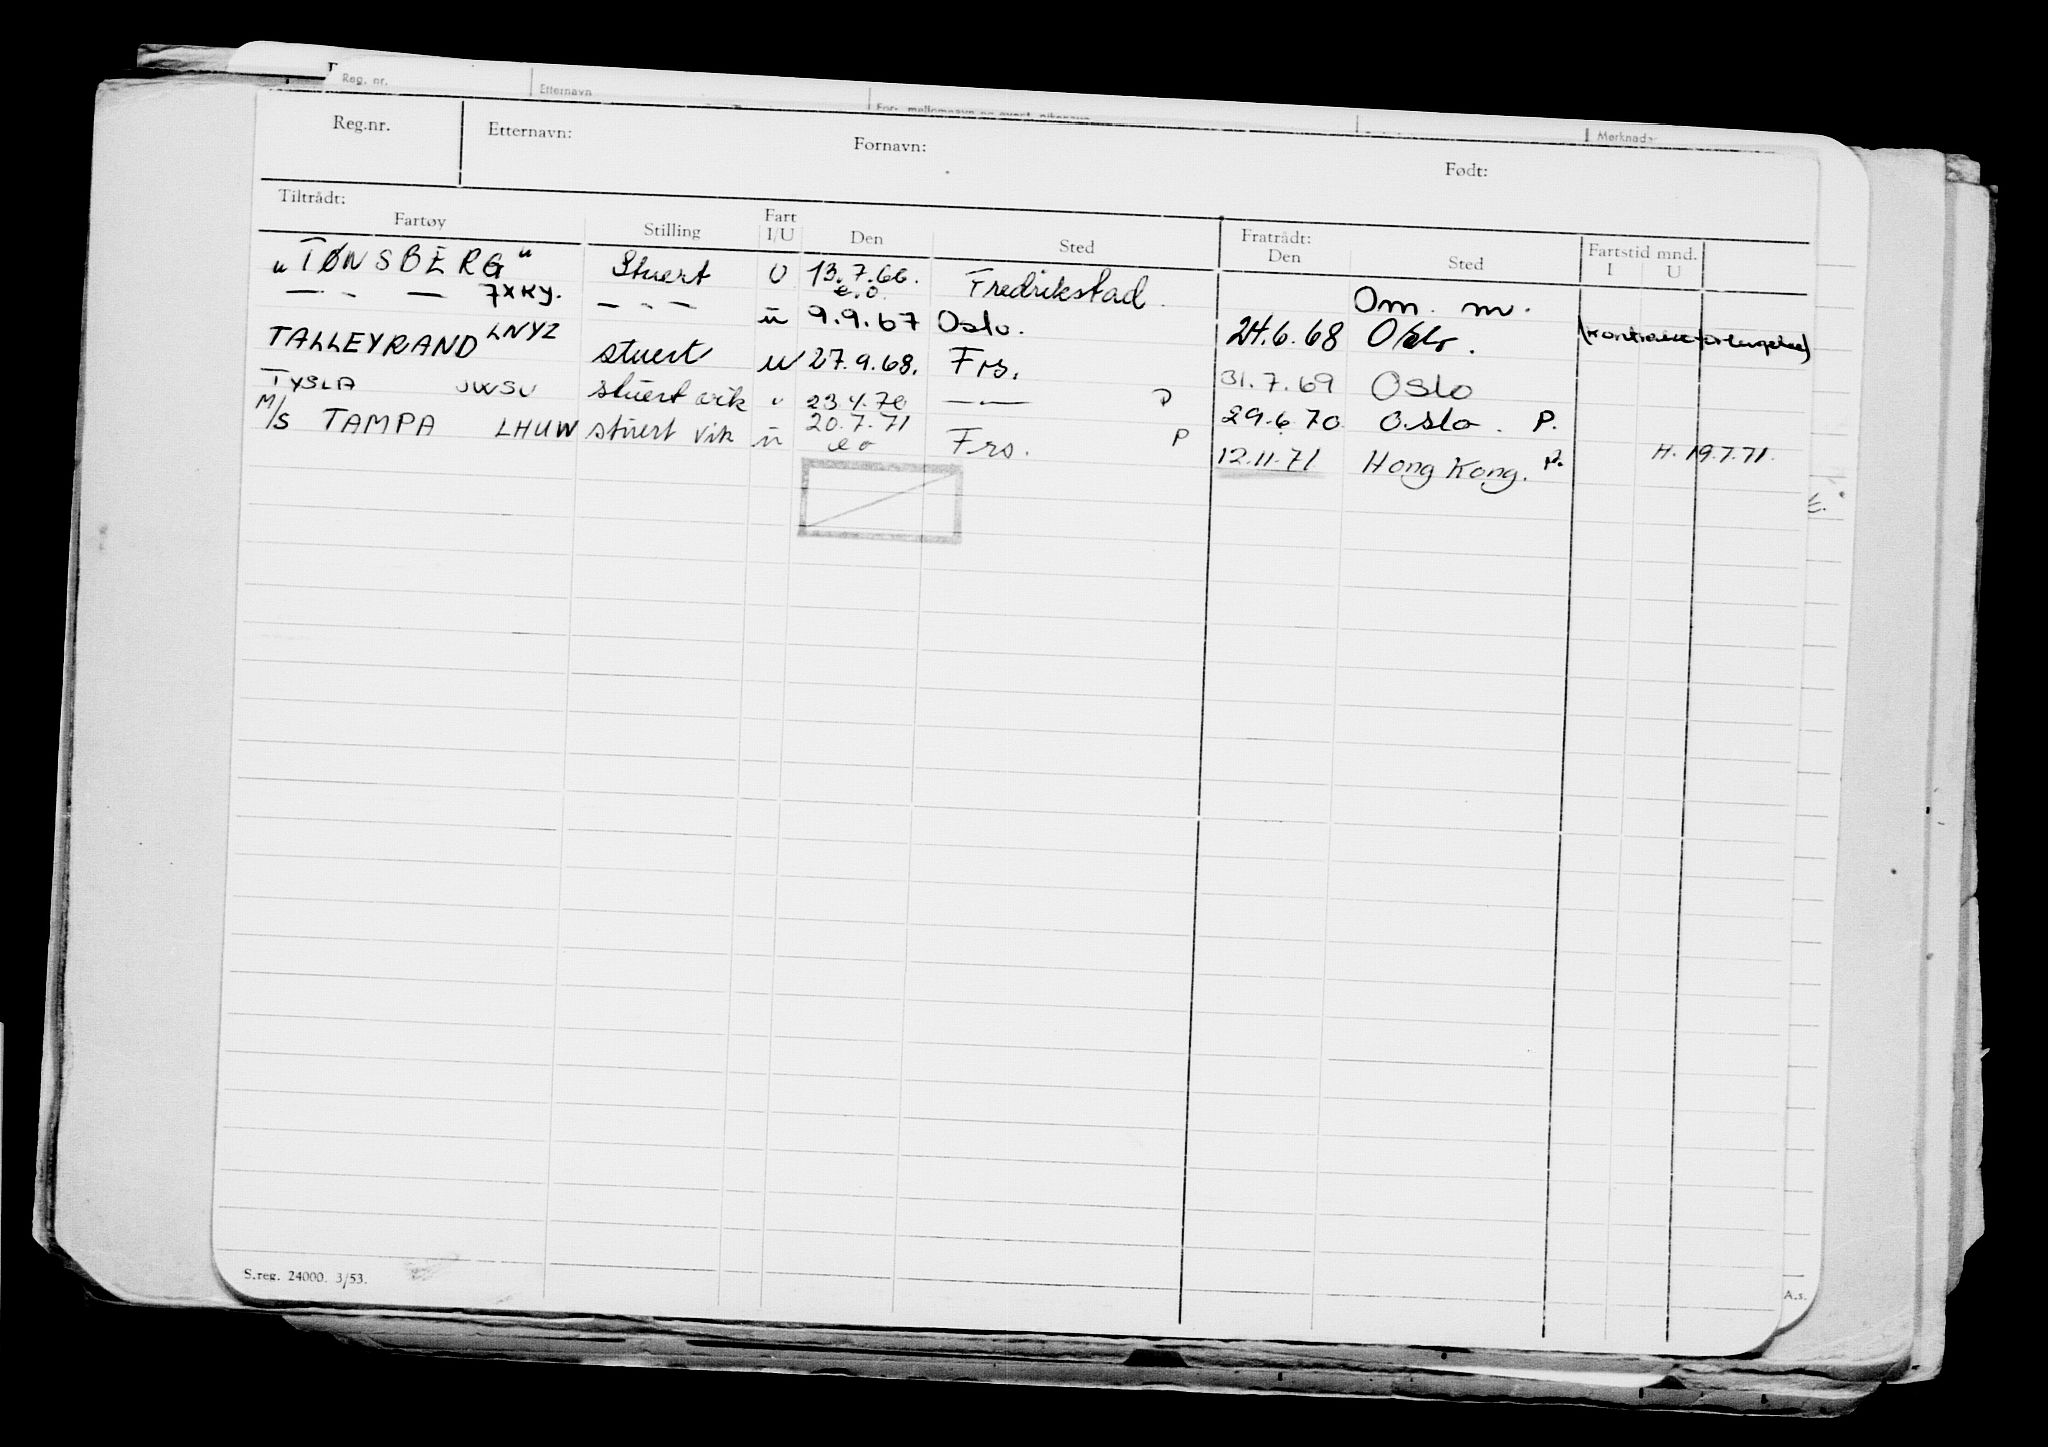 Reg. nr. Etternavn Merknader
Reg.nr. Etternavn: Fornavn: Født:
Tiltrådt: Fratrådt:
Fartøy Stilling Fart I/U Den Sted Den Sted Fartstid mnd. I U
„TØNSBERG" Stuert U 13.7.66. e.o. Fredrikstad. Om. m.
— " — 7XKY. — " — ü 9.9.67 Oslo. 24.6.68 Oslo.
TALLEYRAND LNYZ stuert u 27.9.68. Frs. 31.7.69 Oslo
TYSLA JWSU stuert vik u 23.4.70 —"— P 29.6.70. Oslo. P.
M/S TAMPA LHUW stuert vik ü 20.7.71 eo Frs. P 12.11.71 Hong Kong. P. H. 19.7.71.
S.reg. 24000. 3/53.
A.s.